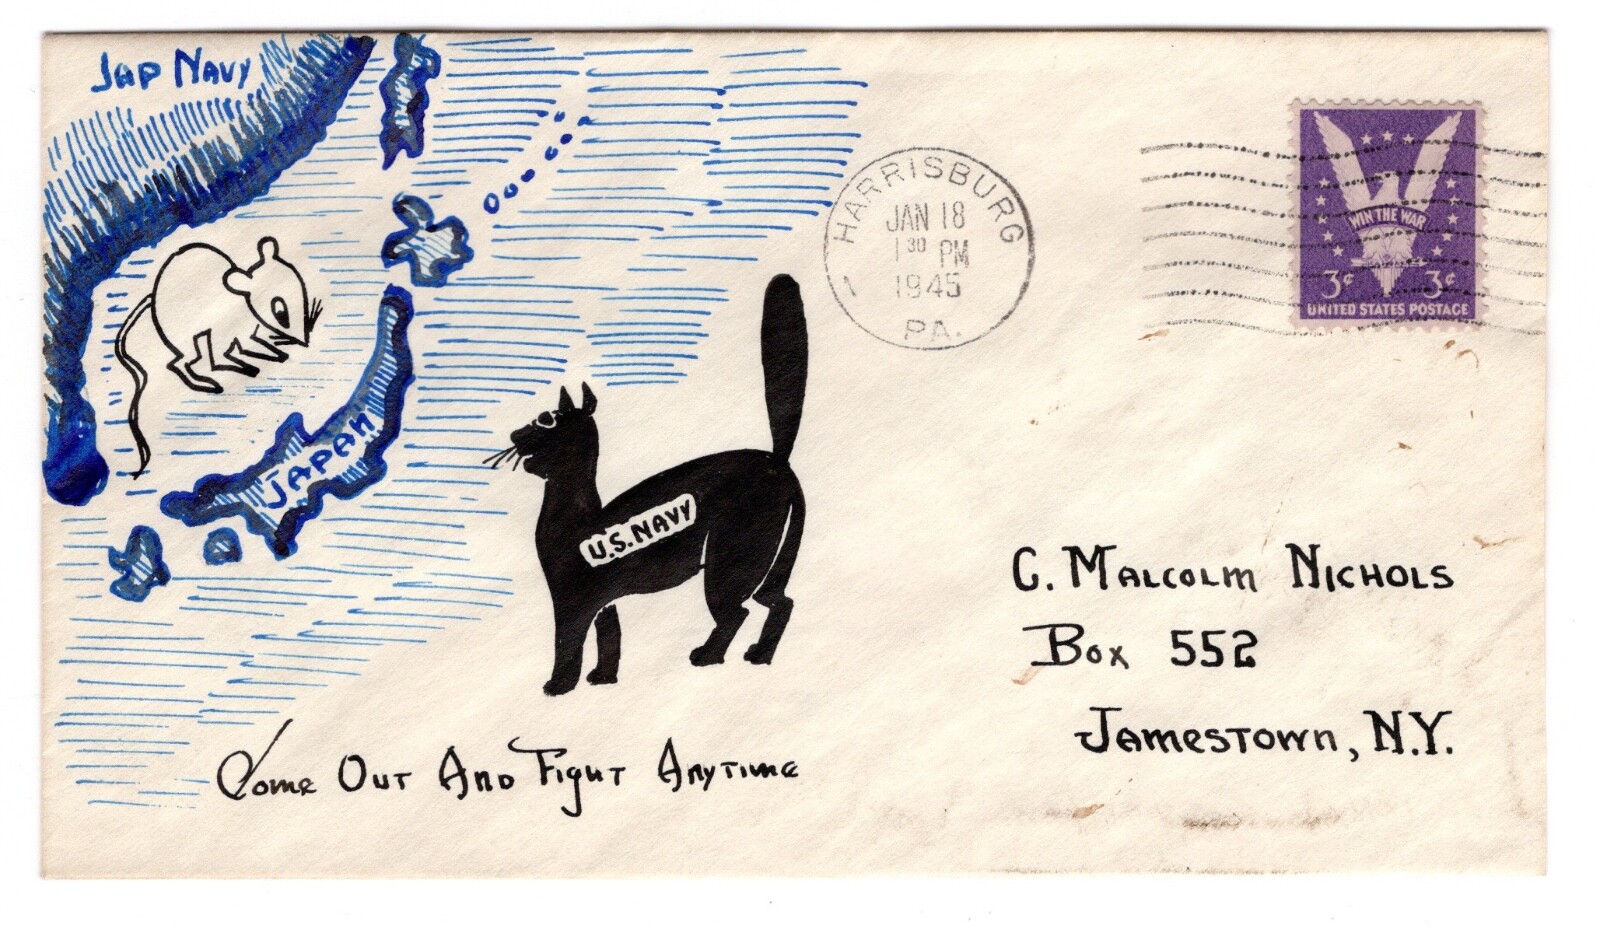 Jap Navy
JAPAN
U.S. NAVY
Come Out And Fight Anytime
HARRISBURG
JAN 18
1 30 PM
1945
1
PA.
WIN THE WAR
3¢ 3¢
UNITED STATES POSTAGE
C. Malcolm Nichols
Box 552
Jamestown, N.Y.